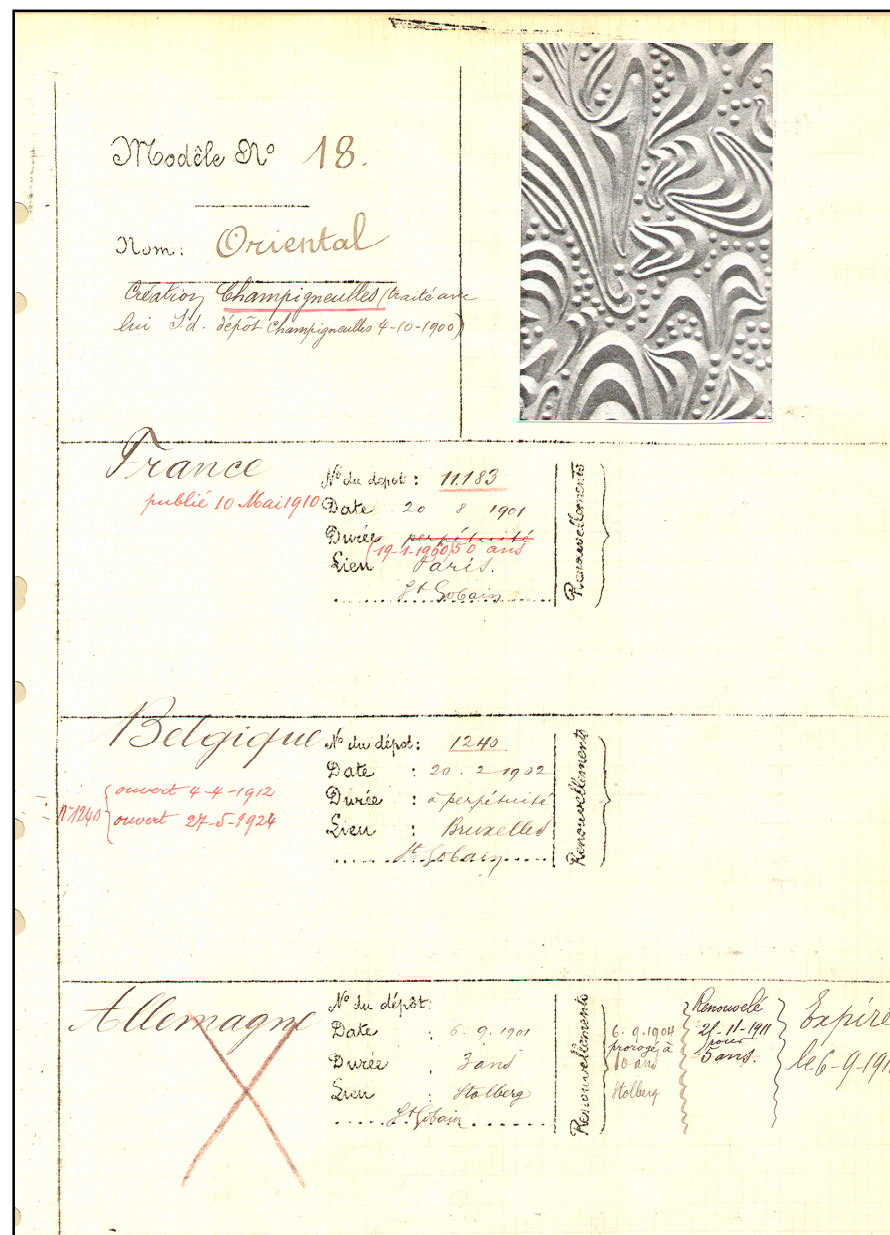 Modèle No 18.
Nom: Oriental
Création Champigneulles (traité avec
lui Id. dépôt Champigneulles 4-10-1900)
France
publié 10 Mai 1910
No du dépot: 11.183
Date 20 8 1901
Durée perpétuité
(19-1-1960) 50 ans
Lieu Paris.
St Gobain
Renouvellements
Belgique
No 1240
ouvert 4-4-1912
ouvert 27-5-1924
No du dépôt: 1240
Date : 20. 2-1902
Durée : à perpétuité
Lieu : Bruxelles
St Gobain
Renouvellements
Allemagne
No du dépôt:
Date : 6. 9. 1901
Durée 3 ans
Lieu : Stolberg
St Gobain
Renouvellements
6. 9. 1904
prorogé à
10 ans
Stolberg
Renouvelé
21-11-1911
pour
5 ans.
Expire
le 6-9-191